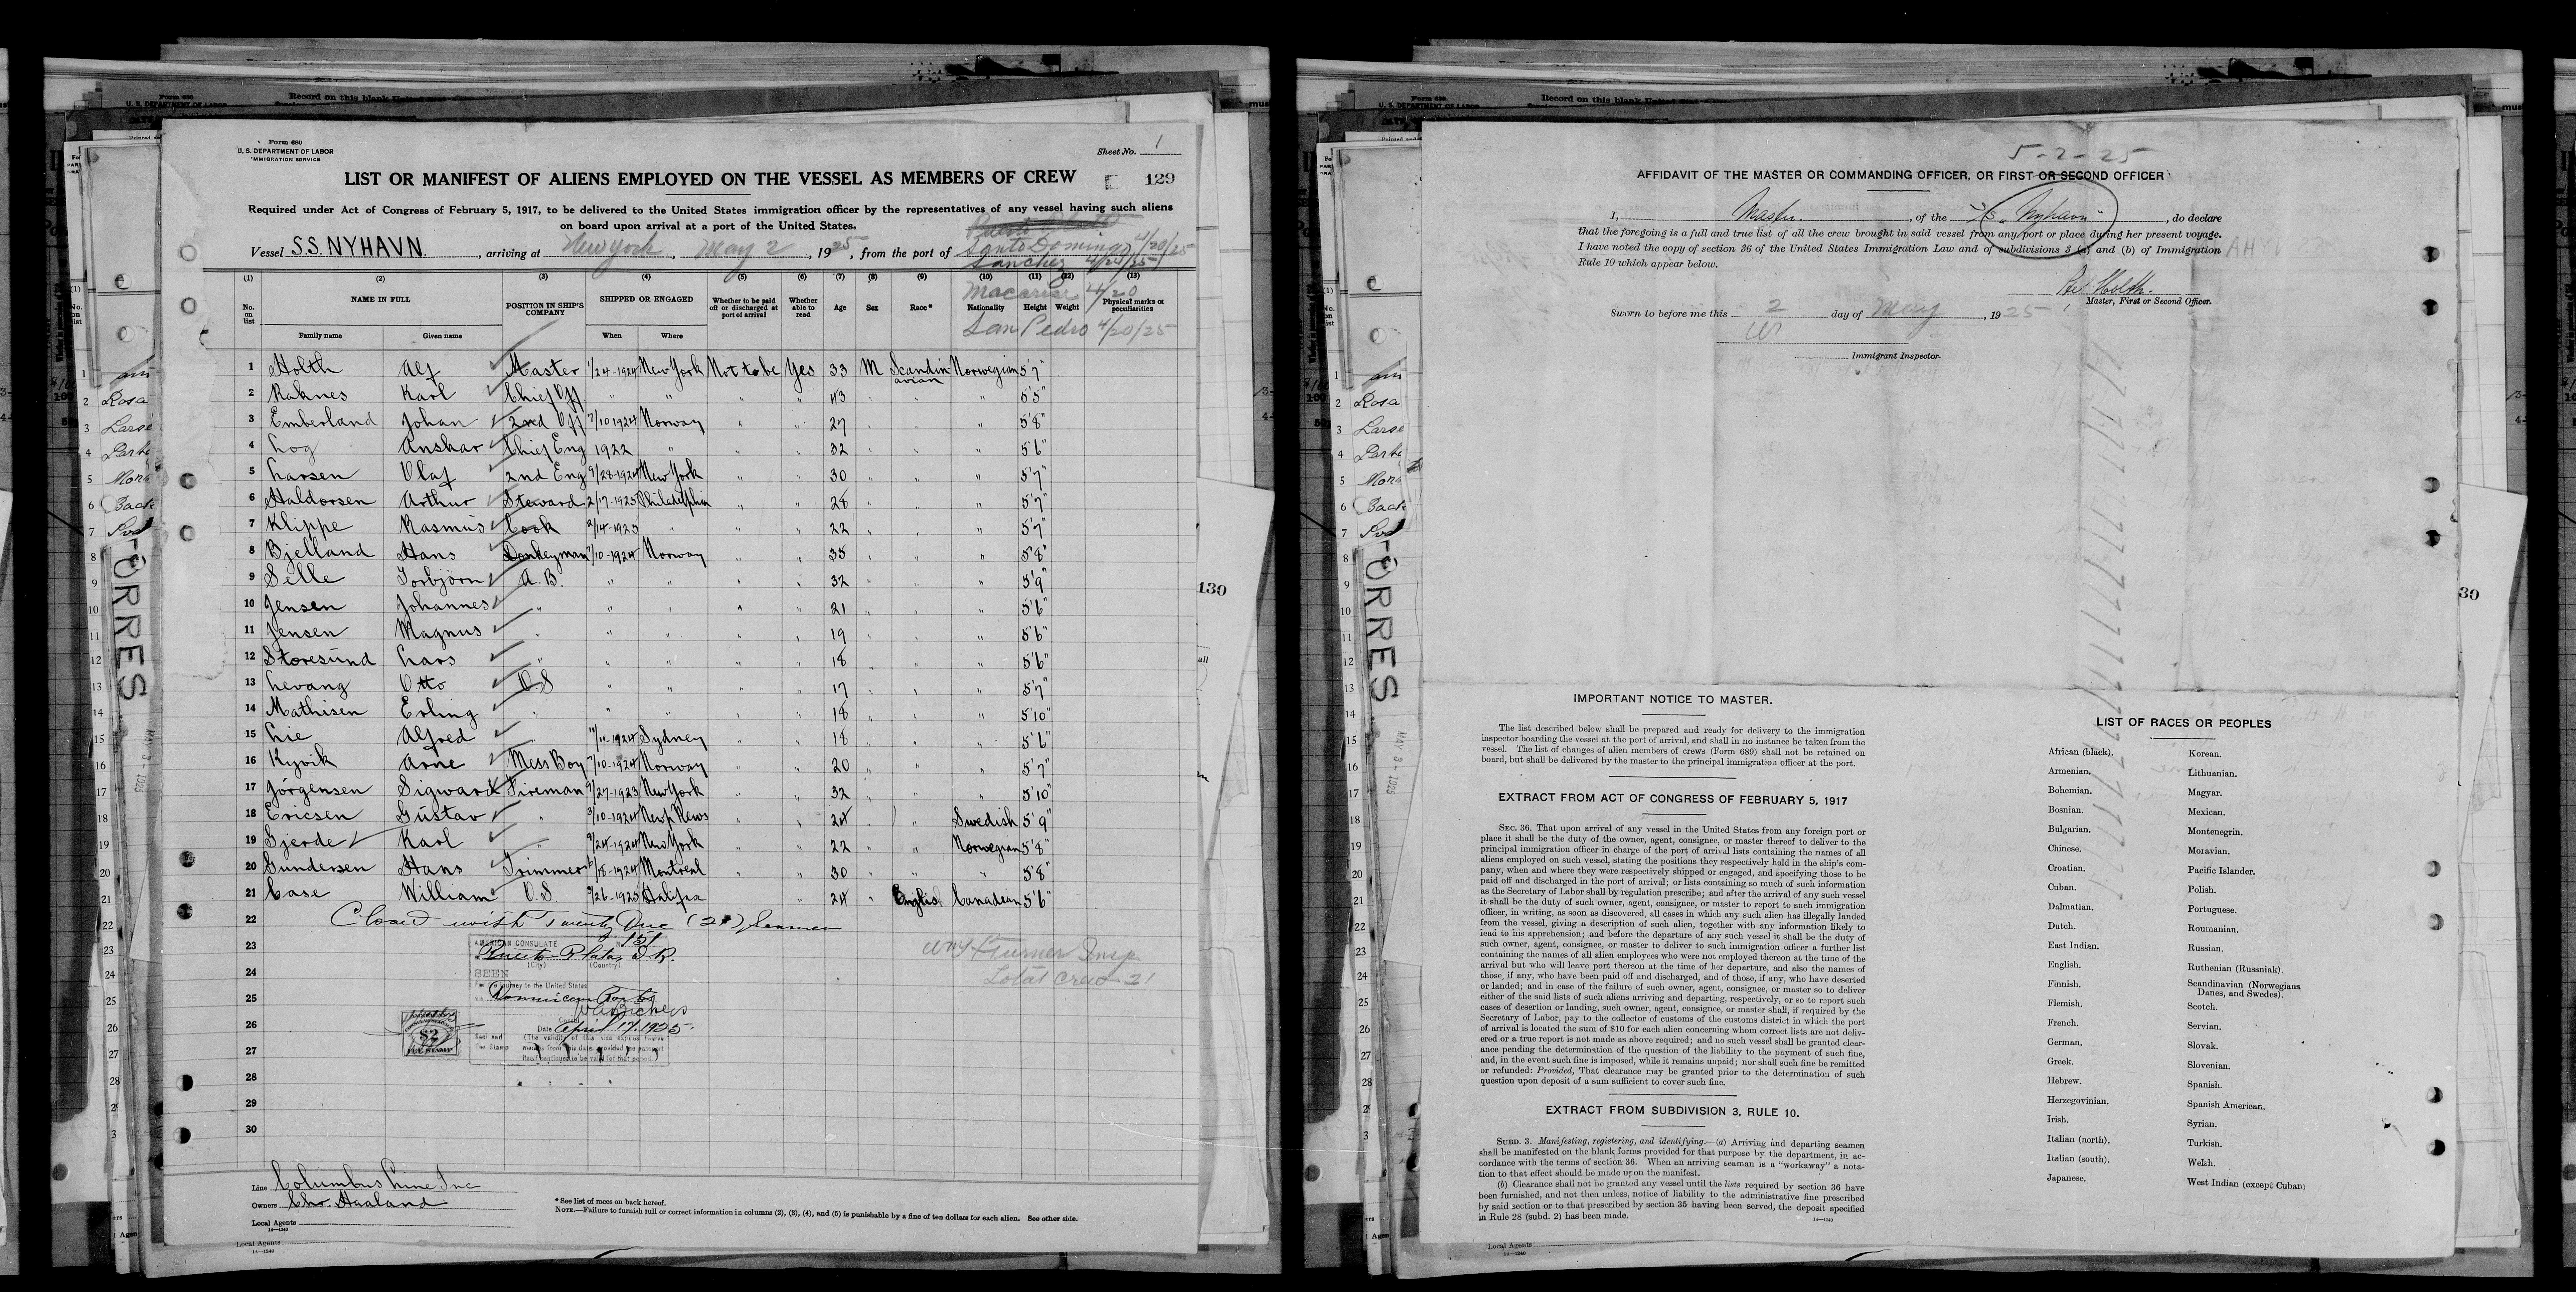 Form 680
U. S. DEPARTMENT OF LABOR
IMMIGRATION SERVICE
Sheet No. 1
LIST OR MANIFEST OF ALIENS EMPLOYED ON THE VESSEL AS MEMBERS OF CREW
129
Required under Act of Congress of February 5, 1917, to be delivered to the United States immigration officer by the representatives of any vessel having such aliens
on board upon arrival at a port of the United States.
Vessel S.S. NYHAVN. , arriving at New York May 2 , 1925, from the port of Santo Domingo 4/20/25
Sanchez 4/24/25
Macoris 4/20
San Pedro 4/20/25
(1) (2) (3) (4) (5) (6) (7) (8) (9) (10) (11) (12) (13)
No. on list NAME IN FULL POSITION IN SHIP'S COMPANY SHIPPED OR ENGAGED Whether to be paid off or discharged at port of arrival Whether able to read Age Sex Race* Nationality Height Weight Physical marks or peculiarities
Family name Given name When Where
1 Holth Alf Master 1/24-1924 New York Not to be Yes 33 M Scandinavian Norwegian 5'7"
2 Raknes Karl Chief Off " " " " 43 " " " 5'5"
3 Emberland Johan 2nd Off 7/10 1924 Norway " " 27 " " " 5'8"
4 Log Anskar Chief Eng 1922 " " " 32 " " " 5'6"
5 Larsen Olaf 2nd Eng 9/28-1924 New York " " 30 " " " 5'7"
6 Haldorsen Arthur Steward 2/17-1925 Philadelphia " " 28 " " " 5'7"
7 Klippe Rasmus Cook 2/14-1925 " " " 22 " " " 5'7"
8 Bjelland Hans Donkeyman 7/10-1924 Norway " " 35 " " " 5'8"
9 Selle Torbjörn A.B. " " " " 32 " " " 5'9"
10 Jensen Johannes " " " " " 21 " " " 5'6"
11 Jensen Magnus " " " " " 19 " " " 5'6"
12 Storesund Lars " " " " " 18 " " " 5'6"
13 Levang Otto O.S " " " " 17 " " " 5'7"
14 Mathisen Erling " " " " " 18 " " " 5'10"
15 Lie Alfred " 11/11-1924 Sydney " " 18 " " " 5'6"
16 Kyvik Arne Mess Boy 7/10-1924 Norway " " 20 " " " 5'7"
17 Jörgensen Sigward Fireman 9/27-1923 New York " " 32 " " " 5'10"
18 Ericsen Gustav " 3/10-1924 Newp. News " " 24 " " Swedish 5'9"
19 Gjerde Karl " 9/24-1924 New York " " 22 " " Norwegian 5'8"
20 Gundersen Hans Trimmer 6/18-1924 Montreal " " 30 " " " 5'8"
21 Case William O.S. 3/26-1925 Halifax " 24 " English Canadian 5'6"
22 Closed with Twenty One (21) Seamen
23
24
25
26
27
28
29
30
AMERICAN CONSULATE
No 151
Puerto Plata, D.R.
(City) (Country)
SEEN
For the journey to the United States
Date April 17. 1925
Seal and
Fee Stamp
$2
FEE STAMP
Turner Insp
Total Crew 21
Line Columbus Line Inc
Owners Chr. Haaland
Local Agents
14—1240
*See list of races on back hereof.
NOTE.—Failure to furnish full or correct information in columns (2), (3), (4), and (5) is punishable by a fine of ten dollars for each alien. See other side.
130
TORRES
5-2-25
AFFIDAVIT OF THE MASTER OR COMMANDING OFFICER, OR FIRST OR SECOND OFFICER
I, Master. , of the S/S "Nyhavn" , do declare
that the foregoing is a full and true list of all the crew brought in said vessel from any port or place during her present voyage.
I have noted the copy of section 36 of the United States Immigration Law and of subdivisions 3 (a) and (b) of Immigration
Rule 10 which appear below.
Alf Holth.
Master, First or Second Officer.
Sworn to before me this 2 day of May , 1925
Immigrant Inspector.
IMPORTANT NOTICE TO MASTER.
The list described below shall be prepared and ready for delivery to the immigration
inspector boarding the vessel at the port of arrival, and shall in no instance be taken from the
vessel. The list of changes of alien members of crews (Form 689) shall not be retained on
board, but shall be delivered by the master to the principal immigration officer at the port.
EXTRACT FROM ACT OF CONGRESS OF FEBRUARY 5, 1917
SEC. 36. That upon arrival of any vessel in the United States from any foreign port or
place it shall be the duty of the owner, agent, consignee, or master thereof to deliver to the
principal immigration officer in charge of the port of arrival lists containing the names of all
aliens employed on such vessel, stating the positions they respectively hold in the ship's com-
pany, when and where they were respectively shipped or engaged, and specifying those to be
paid off and discharged in the port of arrival; or lists containing so much of such information
as the Secretary of Labor shall by regulation prescribe; and after the arrival of any such vessel
it shall be the duty of such owner, agent, consignee, or master to report to such immigration
officer, in writing, as soon as discovered, all cases in which any such alien has illegally landed
from the vessel, giving a description of such alien, together with any information likely to
lead to his apprehension; and before the departure of any such vessel it shall be the duty of
such owner, agent, consignee, or master to deliver to such immigration officer a further list
containing the names of all alien employees who were not employed thereon at the time of the
arrival but who will leave port thereon at the time of her departure, and also the names of
those, if any, who have been paid off and discharged, and of those, if any, who have deserted
or landed; and in case of the failure of such owner, agent, consignee, or master so to deliver
either of the said lists of such aliens arriving and departing, respectively, or so to report such
cases of desertion or landing, such owner, agent, consignee, or master shall, if required by the
Secretary of Labor, pay to the collector of customs of the customs district in which the port
of arrival is located the sum of $10 for each alien concerning whom correct lists are not deliv-
ered or a true report is not made as above required; and no such vessel shall be granted clear-
ance pending the determination of the question of the liability to the payment of such fine,
and, in the event such fine is imposed, while it remains unpaid; nor shall such fine be remitted
or refunded: Provided, That clearance may be granted prior to the determination of such
question upon deposit of a sum sufficient to cover such fine.
EXTRACT FROM SUBDIVISION 3, RULE 10.
SUBD. 3. Manifesting, registering, and identifying.—(a) Arriving and departing seamen
shall be manifested on the blank forms provided for that purpose by the department, in ac-
cordance with the terms of section 36. When an arriving seaman is a "workaway" a nota-
tion to that effect should be made upon the manifest.
(b) Clearance shall not be granted any vessel until the lists required by section 36 have
been furnished, and not then unless, notice of liability to the administrative fine prescribed
by said section or to that prescribed by section 35 having been served, the deposit specified
in Rule 28 (subd. 2) has been made.
14—1240
LIST OF RACES OR PEOPLES
African (black). Korean.
Armenian. Lithuanian.
Bohemian. Magyar.
Bosnian. Mexican.
Bulgarian. Montenegrin.
Chinese. Moravian.
Croatian. Pacific Islander.
Cuban. Polish.
Dalmatian. Portuguese.
Dutch. Roumanian.
East Indian. Russian.
English. Ruthenian (Russniak).
Finnish. Scandinavian (Norwegians
Danes, and Swedes).
Flemish. Scotch.
French. Servian.
German. Slovak.
Greek. Slovenian.
Hebrew. Spanish.
Herzegovinian. Spanish American.
Irish. Syrian.
Italian (north). Turkish.
Italian (south). Welch.
Japanese. West Indian (except Cuban)